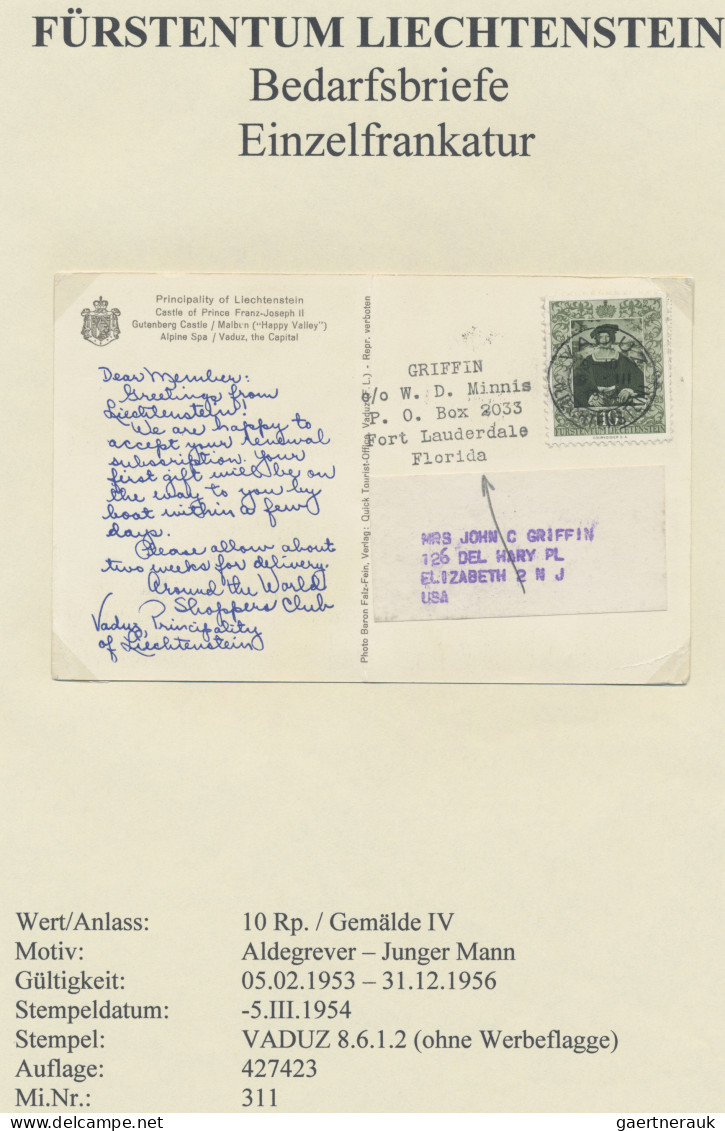 FÜRSTENTUM LIECHTENSTEIN
Bedarfsbriefe
Einzelfrankatur
Principality of Liechtenstein
Castle of Prince Franz-Joseph II
Gutenberg Castle / Malbun ("Happy Valley")
Alpine Spa / Vaduz, the Capital
Dear Member:
Greetings from
Liechtenstein!
We are happy to
accept your renewal
subscription. Your
first gift will be on
the way to you by
boat within a few
days.
Please allow about
two weeks for delivery.
Around the World
Shoppers Club
Vaduz, Principality
of Liechtenstein
Photo Baron Falz-Fein, Verlag: Quick Tourist-Office, Vaduz (F. L.) - Repr. verboten
GRIFFIN
c/o W. D. Minnis
P. O. Box 2033
Fort Lauderdale
Florida
VADUZ
FÜRSTENTUM LIECHTENSTEIN
MRS JOHN C GRIFFIN
126 DEL MARY PL
ELIZABETH 2 N J
USA
Wert/Anlass: 10 Rp. / Gemälde IV
Motiv: Aldegrever – Junger Mann
Gültigkeit: 05.02.1953 – 31.12.1956
Stempeldatum: -5.III.1954
Stempel: VADUZ 8.6.1.2 (ohne Werbeflagge)
Auflage: 427423
Mi.Nr.: 311
gaertnerauk